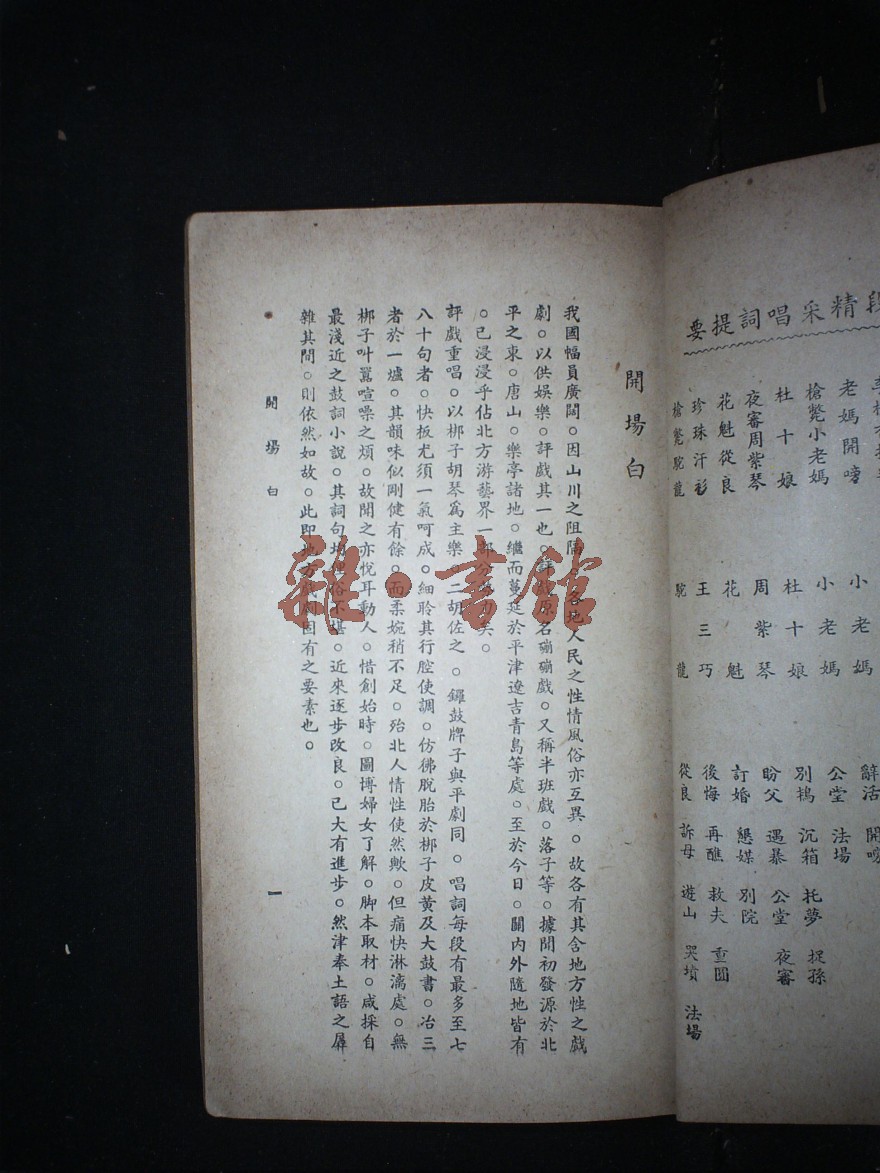 段精采唱詞提要
老媽開嗙 小老媽 辭活 開嗙
槍斃小老媽 小老媽 公堂 法場
杜十娘 杜十娘 別鴇 沉箱 托夢 捉孫
夜審周紫琴 周紫琴 盼父 遇暴 公堂 夜審
花魁從良 花魁 訂婚 懇媒 別院
珍珠汗衫 王三巧 後悔 再醮 救夫 重圓
槍斃駝龍 駝龍 從良 訴母 遊山 哭墳 法場
開場白
我國幅員廣闊。因山川之阻隔。各地人民之性情風俗亦互異。故各有其含地方性之戲
劇。以供娛樂。評戲其一也。評戲原名嘣嘣戲。又稱半班戲。落子等。據聞初發源於北
平之東。唐山。樂亭諸地。繼而蔓延於平津遼吉青島等處。至於今日。關內外隨地皆有
。已浸浸乎佔北方游藝界一部分勢力矣。
評戲重唱。以梆子胡琴爲主樂。二胡佐之。鑼鼓牌子與平劇同。唱詞每段有最多至七
八十句者。快板尤須一氣呵成。細聆其行腔使調。仿佛脫胎於梆子皮黃及大鼓書。冶三
者於一爐。其韻味似剛健有餘。而柔婉稍不足。殆北人情性使然歟。但痛快淋漓處。無
梆子叶囂喧噪之煩。故聞之亦悅耳動人。惜創始時。圖博婦女了解。脚本取材。咸採自
最淺近之鼓詞小說。其詞句均俚俗不堪。近來逐步改良。已大有進步。然津奉土語之羼
雜其間。則依然如故。此即地方戲劇固有之要素也。
開場白
一
雜·書館